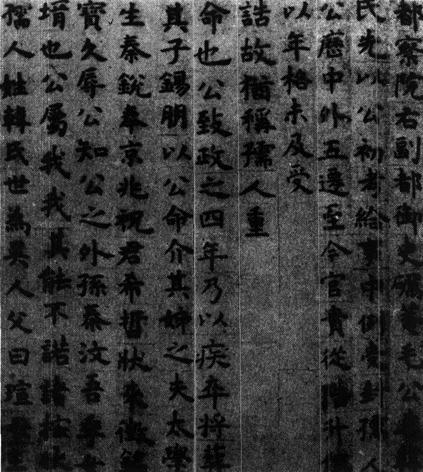 都察院右副都御史礪菴毛公
民先以公初考給事中例受封孺人
公歷中外五遷至今官貴從階升
以年格未及受
誥故猶稱孺人重
命也公致政之四年乃以疾卒將葬
其子錫朋以公命介其姊之夫太學
生秦銳奉京兆祝君希哲狀來徵銘
寶久辱公知公之外孫秦汶吾季女
壻也公屬我我其能不諾諸按狀
孺人姓韓氏世為吳人父曰瑄